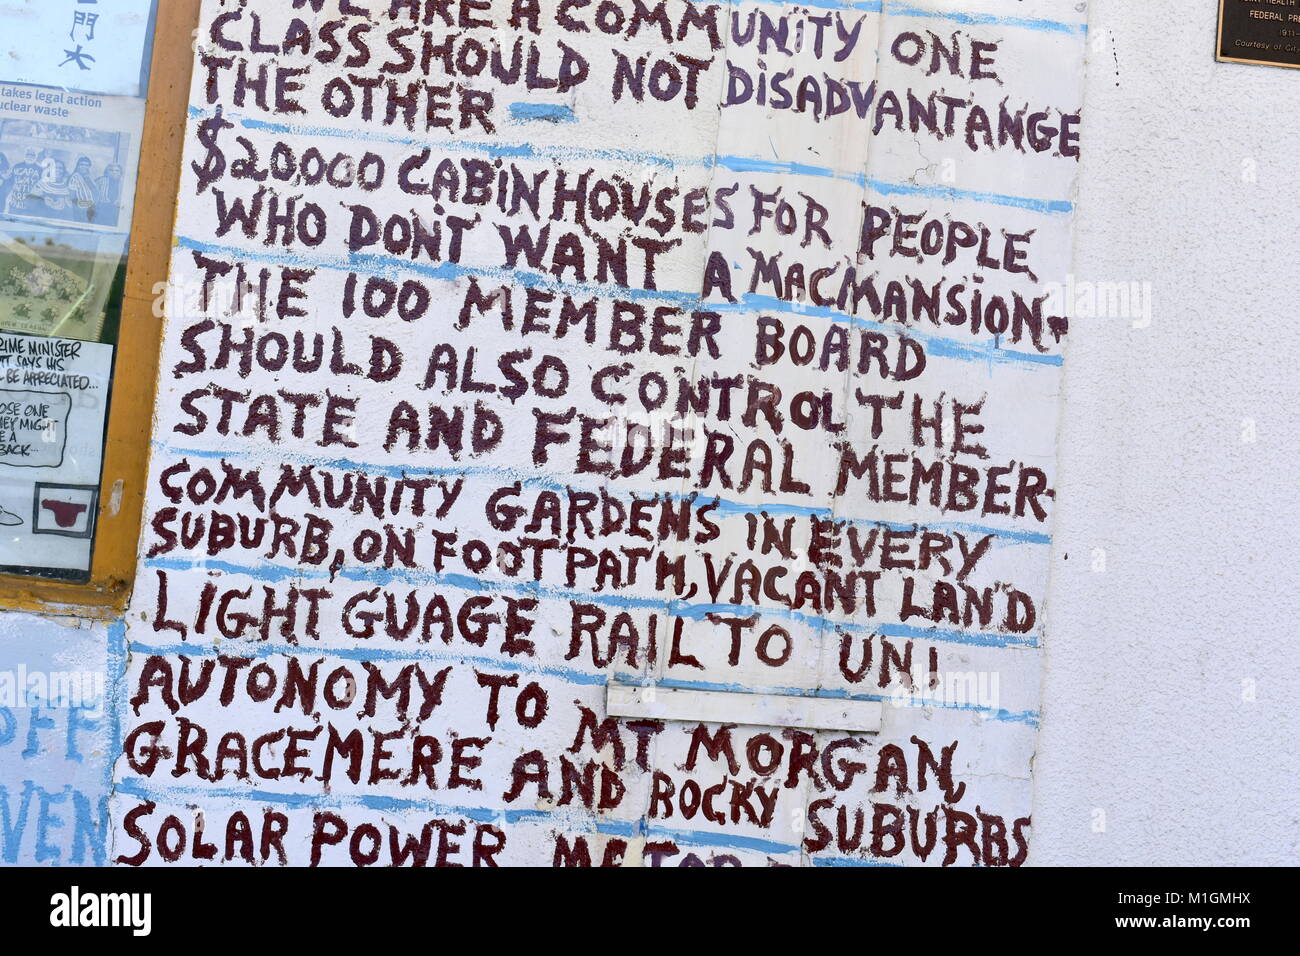 WE ARE A COMMUNITY ONE
CLASS SHOULD NOT DISADVANTANGE
THE OTHER
$20,000 CABIN HOUSES FOR PEOPLE
WHO DON'T WANT A MACMANSION.
THE 100 MEMBER BOARD
SHOULD ALSO CONTROL THE
STATE AND FEDERAL MEMBER.
COMMUNITY GARDENS IN EVERY
SUBURB, ON FOOTPATH, VACANT LAND
LIGHT GUAGE RAIL TO UNI
AUTONOMY TO MT MORGAN,
GRACEMERE AND ROCKY SUBURBS
SOLAR POWER
門
大
takes legal action
nuclear waste
PRIME MINISTER
SAYS HIS
BE APPRECIATED...
ONE
THEY MIGHT
A
BACK...
OFF
HEALTH
FEDERAL
1911-
Courtesy of City
alamy
Image ID: M1GMHX
www.alamy.com